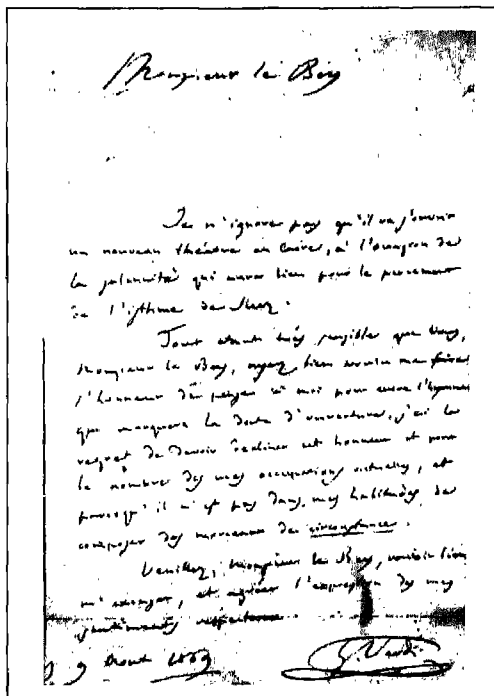 Monsieur le Bey
Je n'ignorer pas qu'il va s'ouvrir
un nouveau théâtre au Caire, à l'occasion de
la solennité qui aura lieu pour le percement
de l'isthme de Suez.
Tout étant très sensible que Vous,
Monsieur le Bey, ayez bien voulu me faire
l'honneur de penser à moi pour écrire l'hymne
que marquera la date d'ouverture, j'ai le
regret de devoir décliner cet honneur et pour
le nombre des mes occupations actuelles, et
parcequ'il n'est pas dans mes habitudes de
composer des morceaux de circonstance.
Veuillez, Monsieur le Bey, vouloir bien
m'excuser, et agréer l'expression de mes
sentiments
9 Aout 1869 G. Verdi